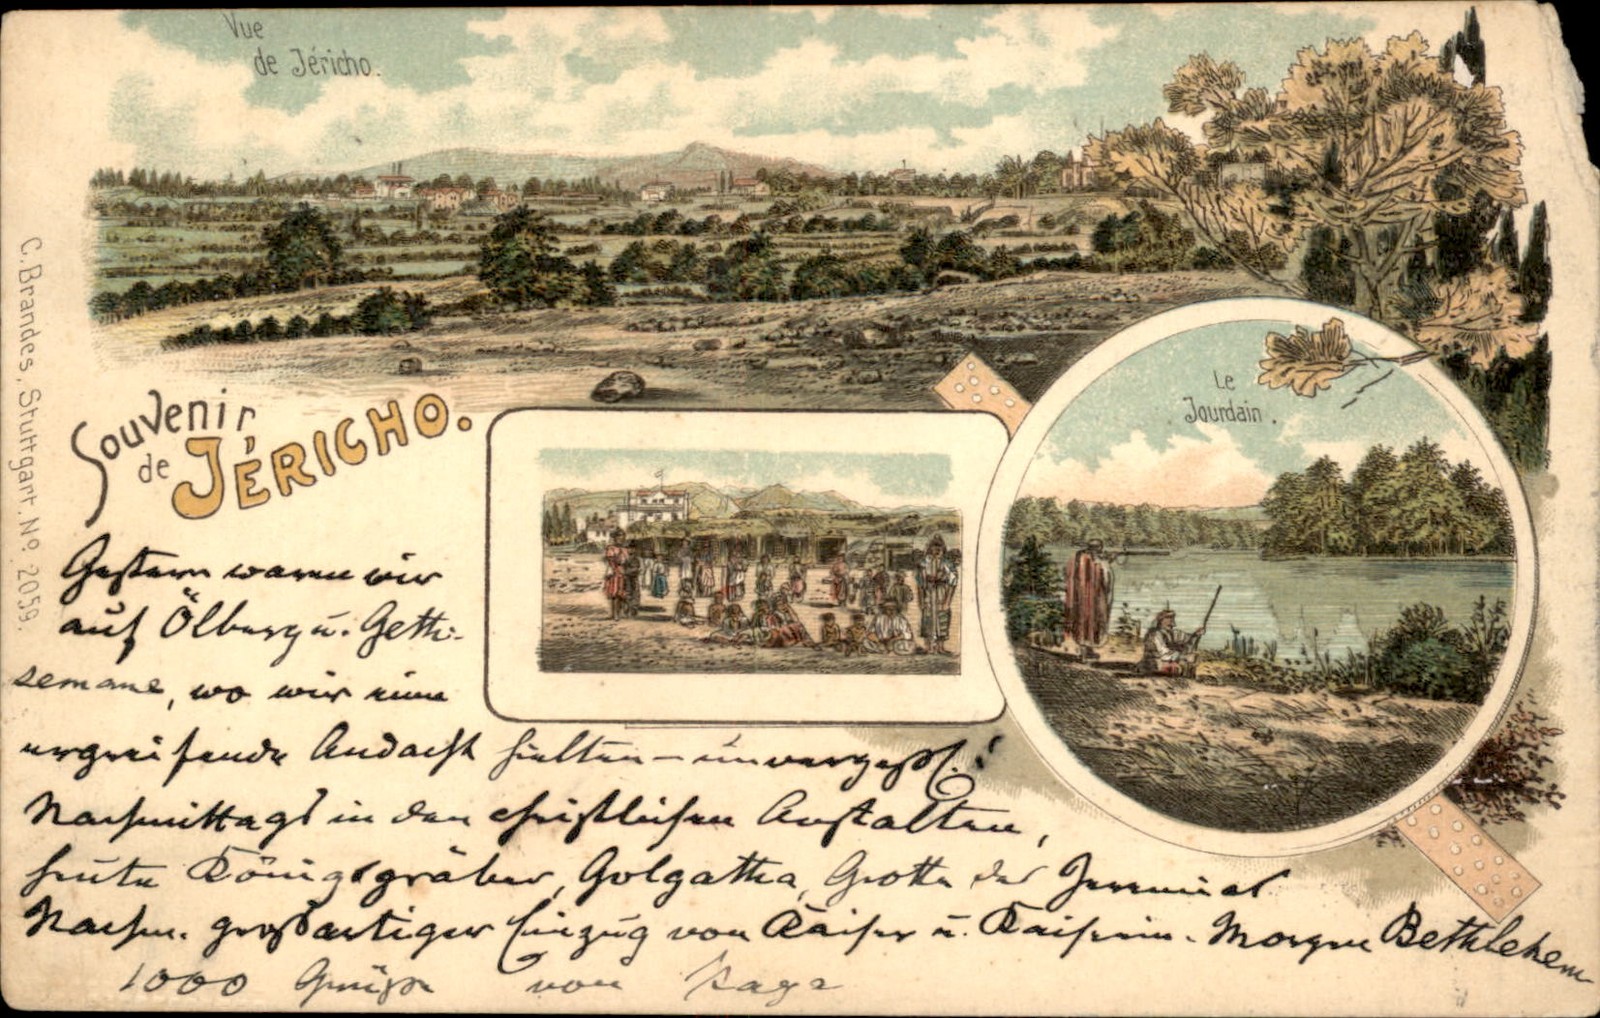 Vue
de Jéricho.
Le
Jourdain.
Souvenir
de JÉRICHO.
C. Brandes, Stuttgart. No. 2059.
Gestern waren wir
auf Ölberg u. Geth-
semane, wo wir eine
ergreifende Andacht hielten – unvergeßl.!
Nachmittags in den christlichen Anstalten,
heute Königsgräber, Golgatha, Grotte des Jeremias.
Nachm. großartiger Einzug von Kaiser u. Kaiserin. Morgen Bethlehem
1000 Grüße von